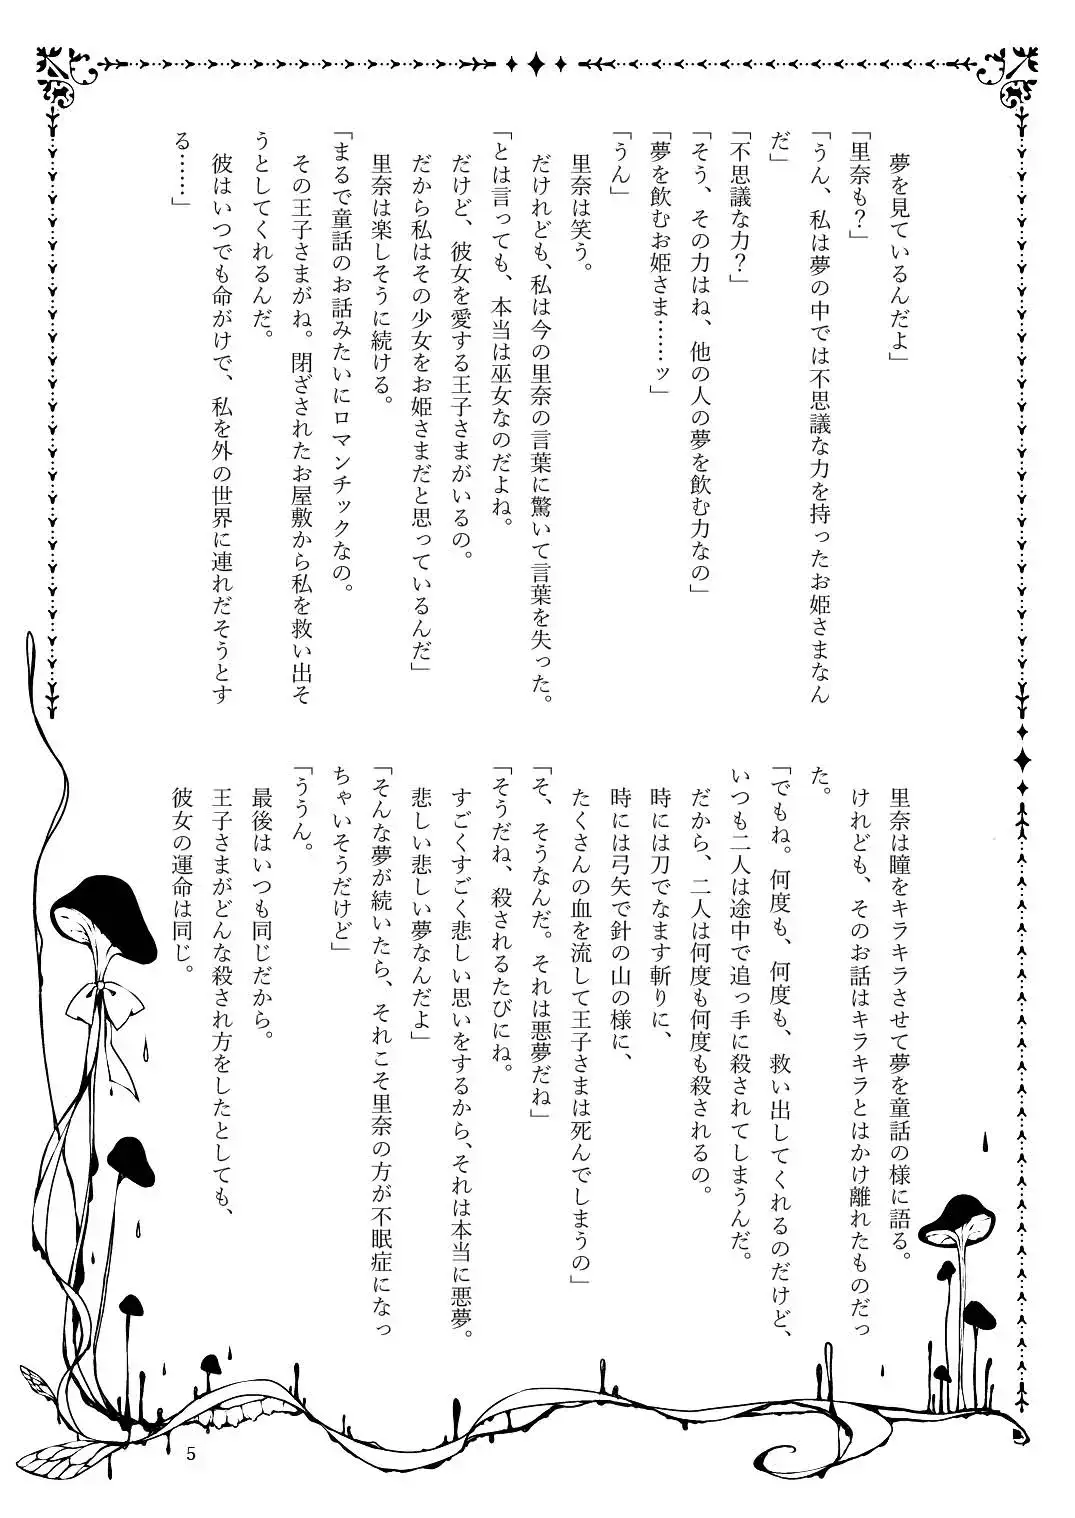 夢を見ているんだよ」
「里奈も？」
「うん、私は夢の中では不思議な力を持ったお姫さまなん
だ」
「不思議な力？」
「そう、その力はね、他の人の夢を飲む力なの」
「夢を飲むお姫さま……ッ」
「うん」
里奈は笑う。
だけれども、私は今の里奈の言葉に驚いて言葉を失った。
「とは言っても、本当は巫女なのだよね。
だけど、彼女を愛する王子さまがいるの。
だから私はその少女をお姫さまだと思っているんだ」
里奈は楽しそうに続ける。
「まるで童話のお話みたいにロマンチックなの。
その王子さまがね。閉ざされたお屋敷から私を救い出そ
うとしてくれるんだ。
彼はいつでも命がけで、私を外の世界に連れだそうとす
る……」
里奈は瞳をキラキラさせて夢を童話の様に語る。
けれども、そのお話はキラキラとはかけ離れたものだっ
た。
「でもね。何度も、何度も、救い出してくれるのだけど、
いつも二人は途中で追っ手に殺されてしまうんだ。
だから、二人は何度も何度も殺されるの。
時には刀でなます斬りに、
時には弓矢で針の山の様に、
たくさんの血を流して王子さまは死んでしまうの」
「そ、そうなんだ。それは悪夢だね」
「そうだね、殺されるたびにね。
すごくすごく悲しい思いをするから、それは本当に悪夢。
悲しい悲しい夢なんだよ」
「そんな夢が続いたら、それこそ里奈の方が不眠症になっ
ちゃいそうだけど」
「ううん。
最後はいつも同じだから。
王子さまがどんな殺され方をしたとしても、
彼女の運命は同じ。
5